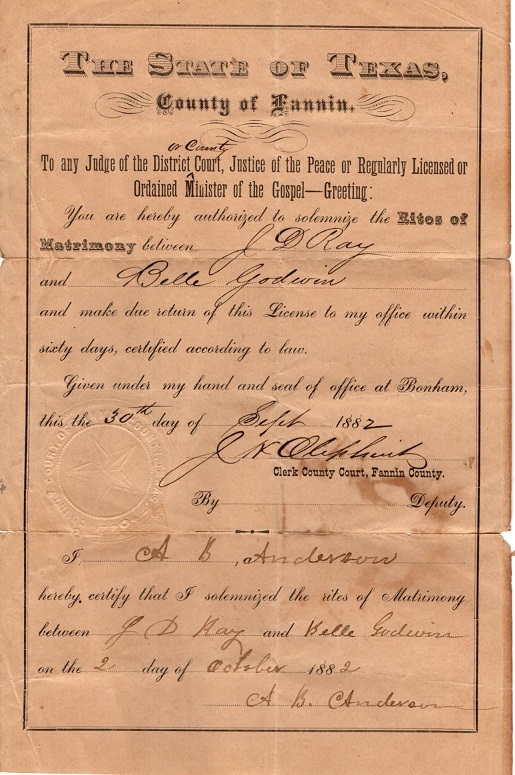 THE STATE OF TEXAS,
County of Fannin.
or County
To any Judge of the District Court, Justice of the Peace or Regularly Licensed or
Ordained ^ Minister of the Gospel—Greeting:
You are hereby authorized to solemnize the Rites of
Matrimony between J D Ray
and Belle Godwin
and make due return of this License to my office within
sixty days, certified according to law.
Given under my hand and seal of office at Bonham,
this the 30th day of Sept 1882
J K
Clerk County Court, Fannin County.
By Deputy.
I, A B, a Anderson
hereby certify that I solemnized the rites of Matrimony
between J D Ray and Belle Godwin
on the 2 day of October 1882
A B. Anderson